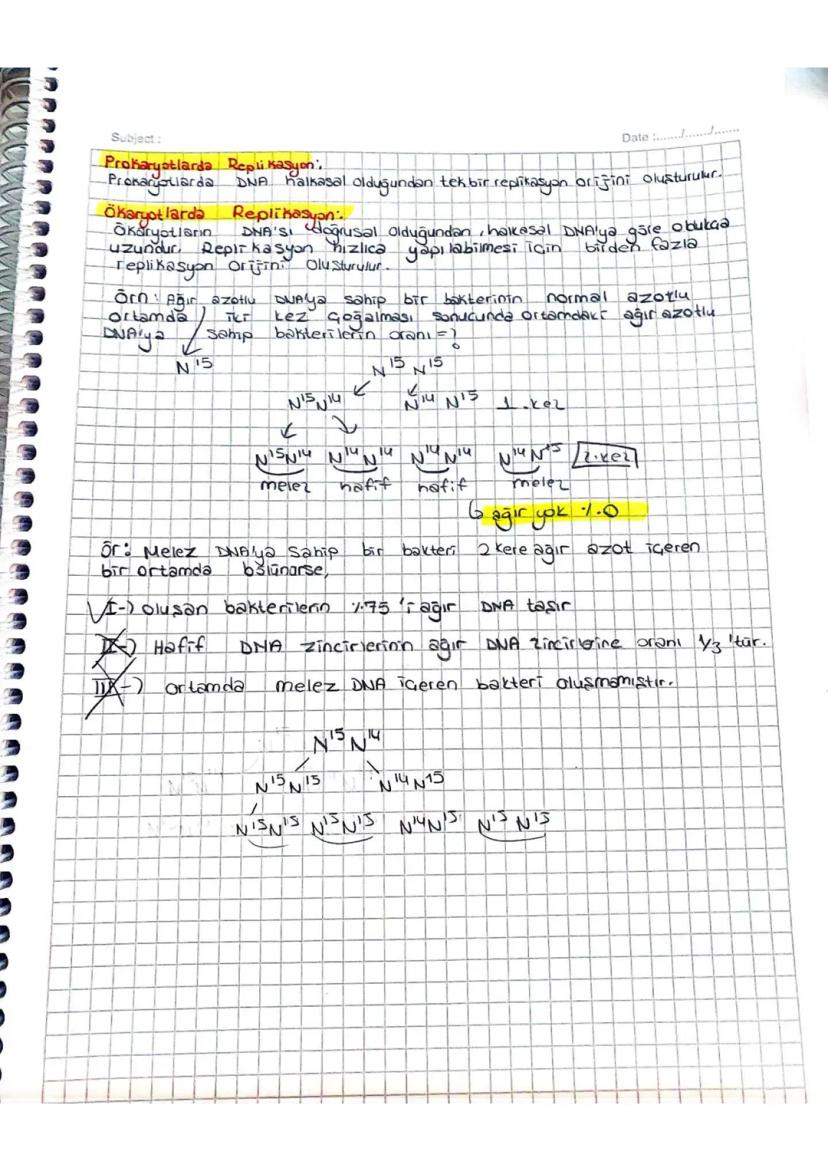 Subject :
Date :......./......./.......
Prokaryotlarda Replikasyon:
Prokaryotlarda DNA halkasal olduğundan tek bir replikasyon orijini oluşturulur.
Ökaryotlarda Replikasyon:
Ökaryotların DNA'sı doğrusal olduğundan, halkasal DNA'ya göre oldukça
uzundur. Replikasyon hızlıca yapılabilmesi için birden fazla
replikasyon orijini oluşturulur.
Örn: Ağır azotlu DNA'ya sahip bir bakterinin normal azotlu
ortamda iki kez çoğalması sonucunda ortamdaki ağır azotlu
DNA'ya sahip bakterilerin oranı = ?
N15
N15 N15
N15 N14 N14 N15 1.kez
N15N14 N14N14 N14N14 N14N15 2.kez
melez hafif hafif melez
ağır yok %0
Ör: Melez DNA'ya sahip bir bakteri 2 kere ağır azot içeren
bir ortamda bölünürse,
I-) oluşan bakterilerin %75'i ağır DNA taşır
II-) Hafif DNA zincirlerinin ağır DNA zincirlerine oranı 1/3'tür.
III-) ortamda melez DNA içeren bakteri oluşmamıştır.
N15N14
N15N15 N14N15
N15N15 N15N15 N14N15 N15N15